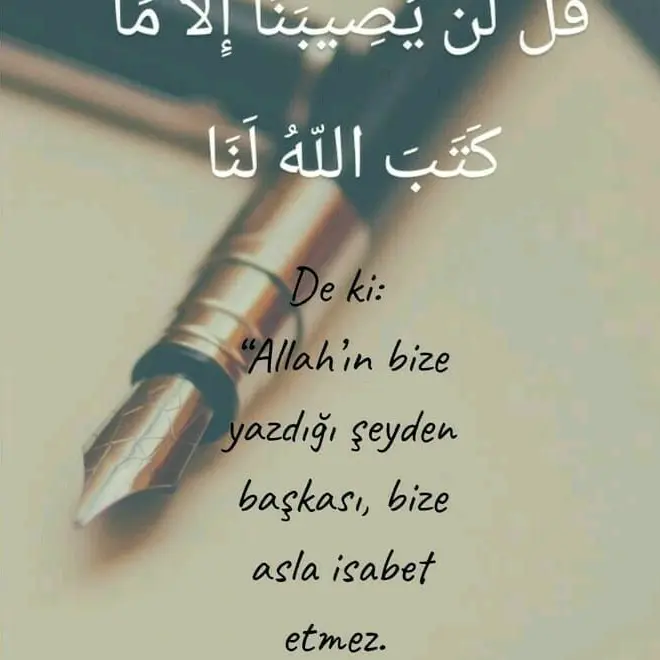 قُل لَّن يُصِيبَنَا إِلَّا مَا
كَتَبَ اللّهُ لَنَا
De ki:
“Allah’ın bize
yazdığı şeyden
başkası, bize
asla isabet
etmez.